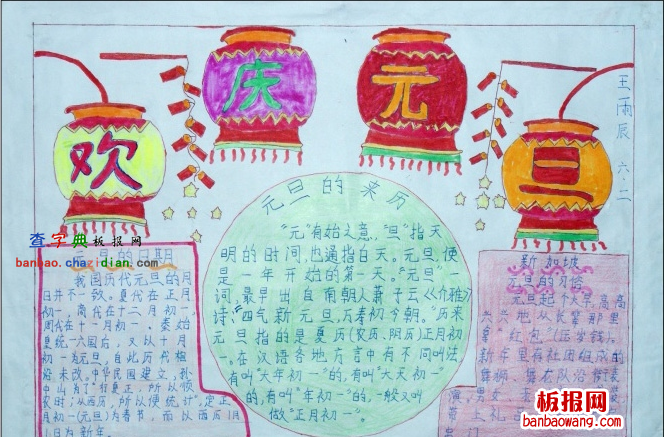 欢
庆
元
旦
王雨辰
六.二
查字典板报网
banbao.chazidian.com
元旦的来历
"元"有始之意,"旦"指天
明的时间,也通指白天。元旦,便
是一年开始的第一天。"元旦"一
词,最早出自南朝人萧子云《介雅》
诗:"四气新元旦,万寿初今朝。"历来
元旦指的是夏历(农历、阴历)正月初
一。在汉语各地方言中有不同叫法,
有叫"大年初一"的,有叫"大天初一"
的,有叫"年初一"的,一般又叫
做"正月初一"。
的日期
我国历代元旦的月
日并不一致。夏代在正月
初一,商代在十二月初一,
周代在十一月初一,秦始
皇统一六国后,又以十月
初一为元旦,自此历代相
沿未改,中华民国建立,孙
中山为了"行夏正,所以顺
农时;从西历,所以便统计",定正
月初一(元旦)为春节,而以西历1月
1日为新年。
新加坡
元旦的习俗
元旦起个大早,高高
兴兴地从长辈那里
拿"红包"(压岁钱)。
新年里有社团组成的
舞狮、舞龙队沿街表
演,男女
带上礼
板报网
banbaowang.com